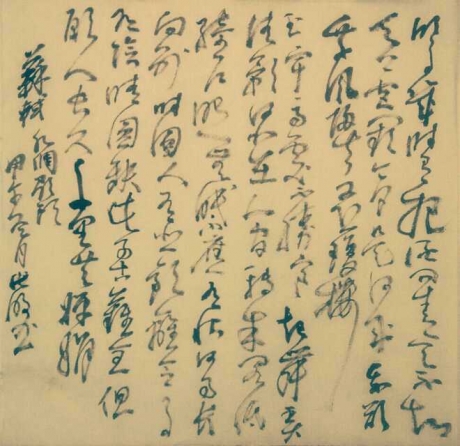 明月幾時有把酒問青天不知
天上宮闕今夕是何年我欲
乘風歸去又恐瓊樓
玉宇高處不勝寒起舞弄
清影何似在人間轉朱閣低
綺戶照無眠不應有恨何事長
向別時圓人有悲歡離合月
有陰晴圓缺此事古難全但
願人長久千里共嬋娟
蘇軾水調歌頭
甲午月書